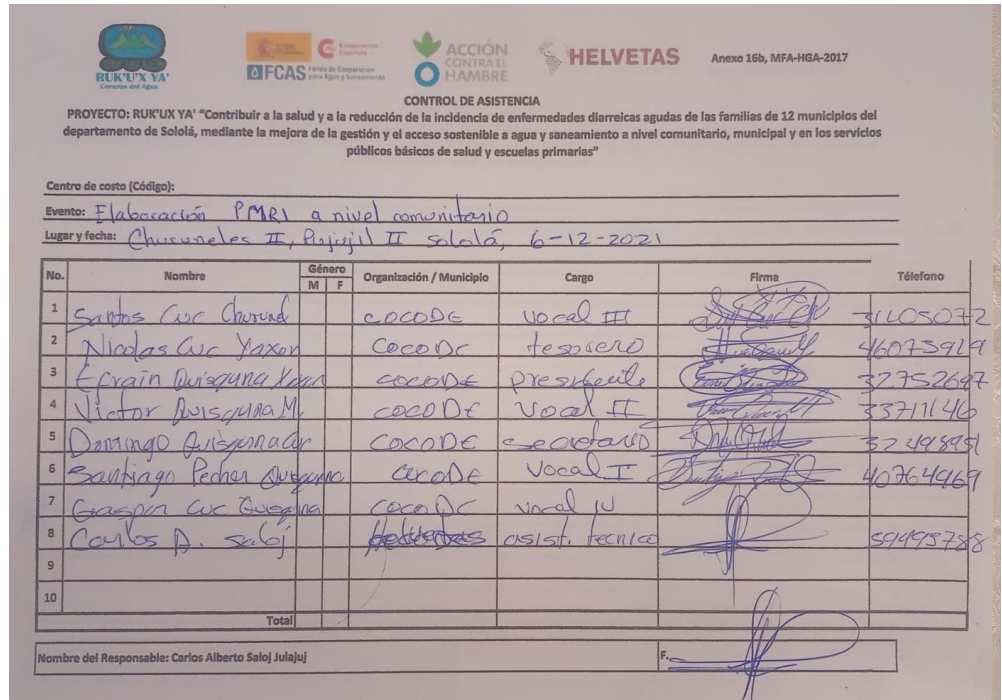 RUK'U'X YA'
Corazón del Agua
Cooperación Española
FCAS Fondo de Cooperación para Agua y Saneamiento
ACCIÓN CONTRA EL HAMBRE
HELVETAS
Anexo 16b, MFA-HGA-2017
CONTROL DE ASISTENCIA
PROYECTO: RUK'UX YA' "Contribuir a la salud y a la reducción de la incidencia de enfermedades diarreicas agudas de las familias de 12 municipios del
departamento de Sololá, mediante la mejora de la gestión y el acceso sostenible a agua y saneamiento a nivel comunitario, municipal y en los servicios
públicos básicos de salud y escuelas primarias"
Centro de costo (Código):
Evento: Elaboración PMRI a nivel comunitario
Lugar y fecha: Chucuneles II, Pujujil II Sololá, 6-12-2021
No. Nombre Género M F Organización / Municipio Cargo Firma Télefono
1 Santos Cuc COCODE vocal III
2 Nicolas Cuc Yaxon COCODE tesorero
3 Efrain Quisquina COCODE presidente
4 Victor Quisquina M. COCODE Vocal II 33711146
5 Domingo Quisquina COCODE secretario
6 Santiago Pecher COCODE Vocal I 40764969
7 Gaspar Cuc COCODE vocal IV
8 Carlos A. Saloj asist. tecnico 59495788
9
10
Total
Nombre del Responsable: Carlos Alberto Saloj Julajuj F.